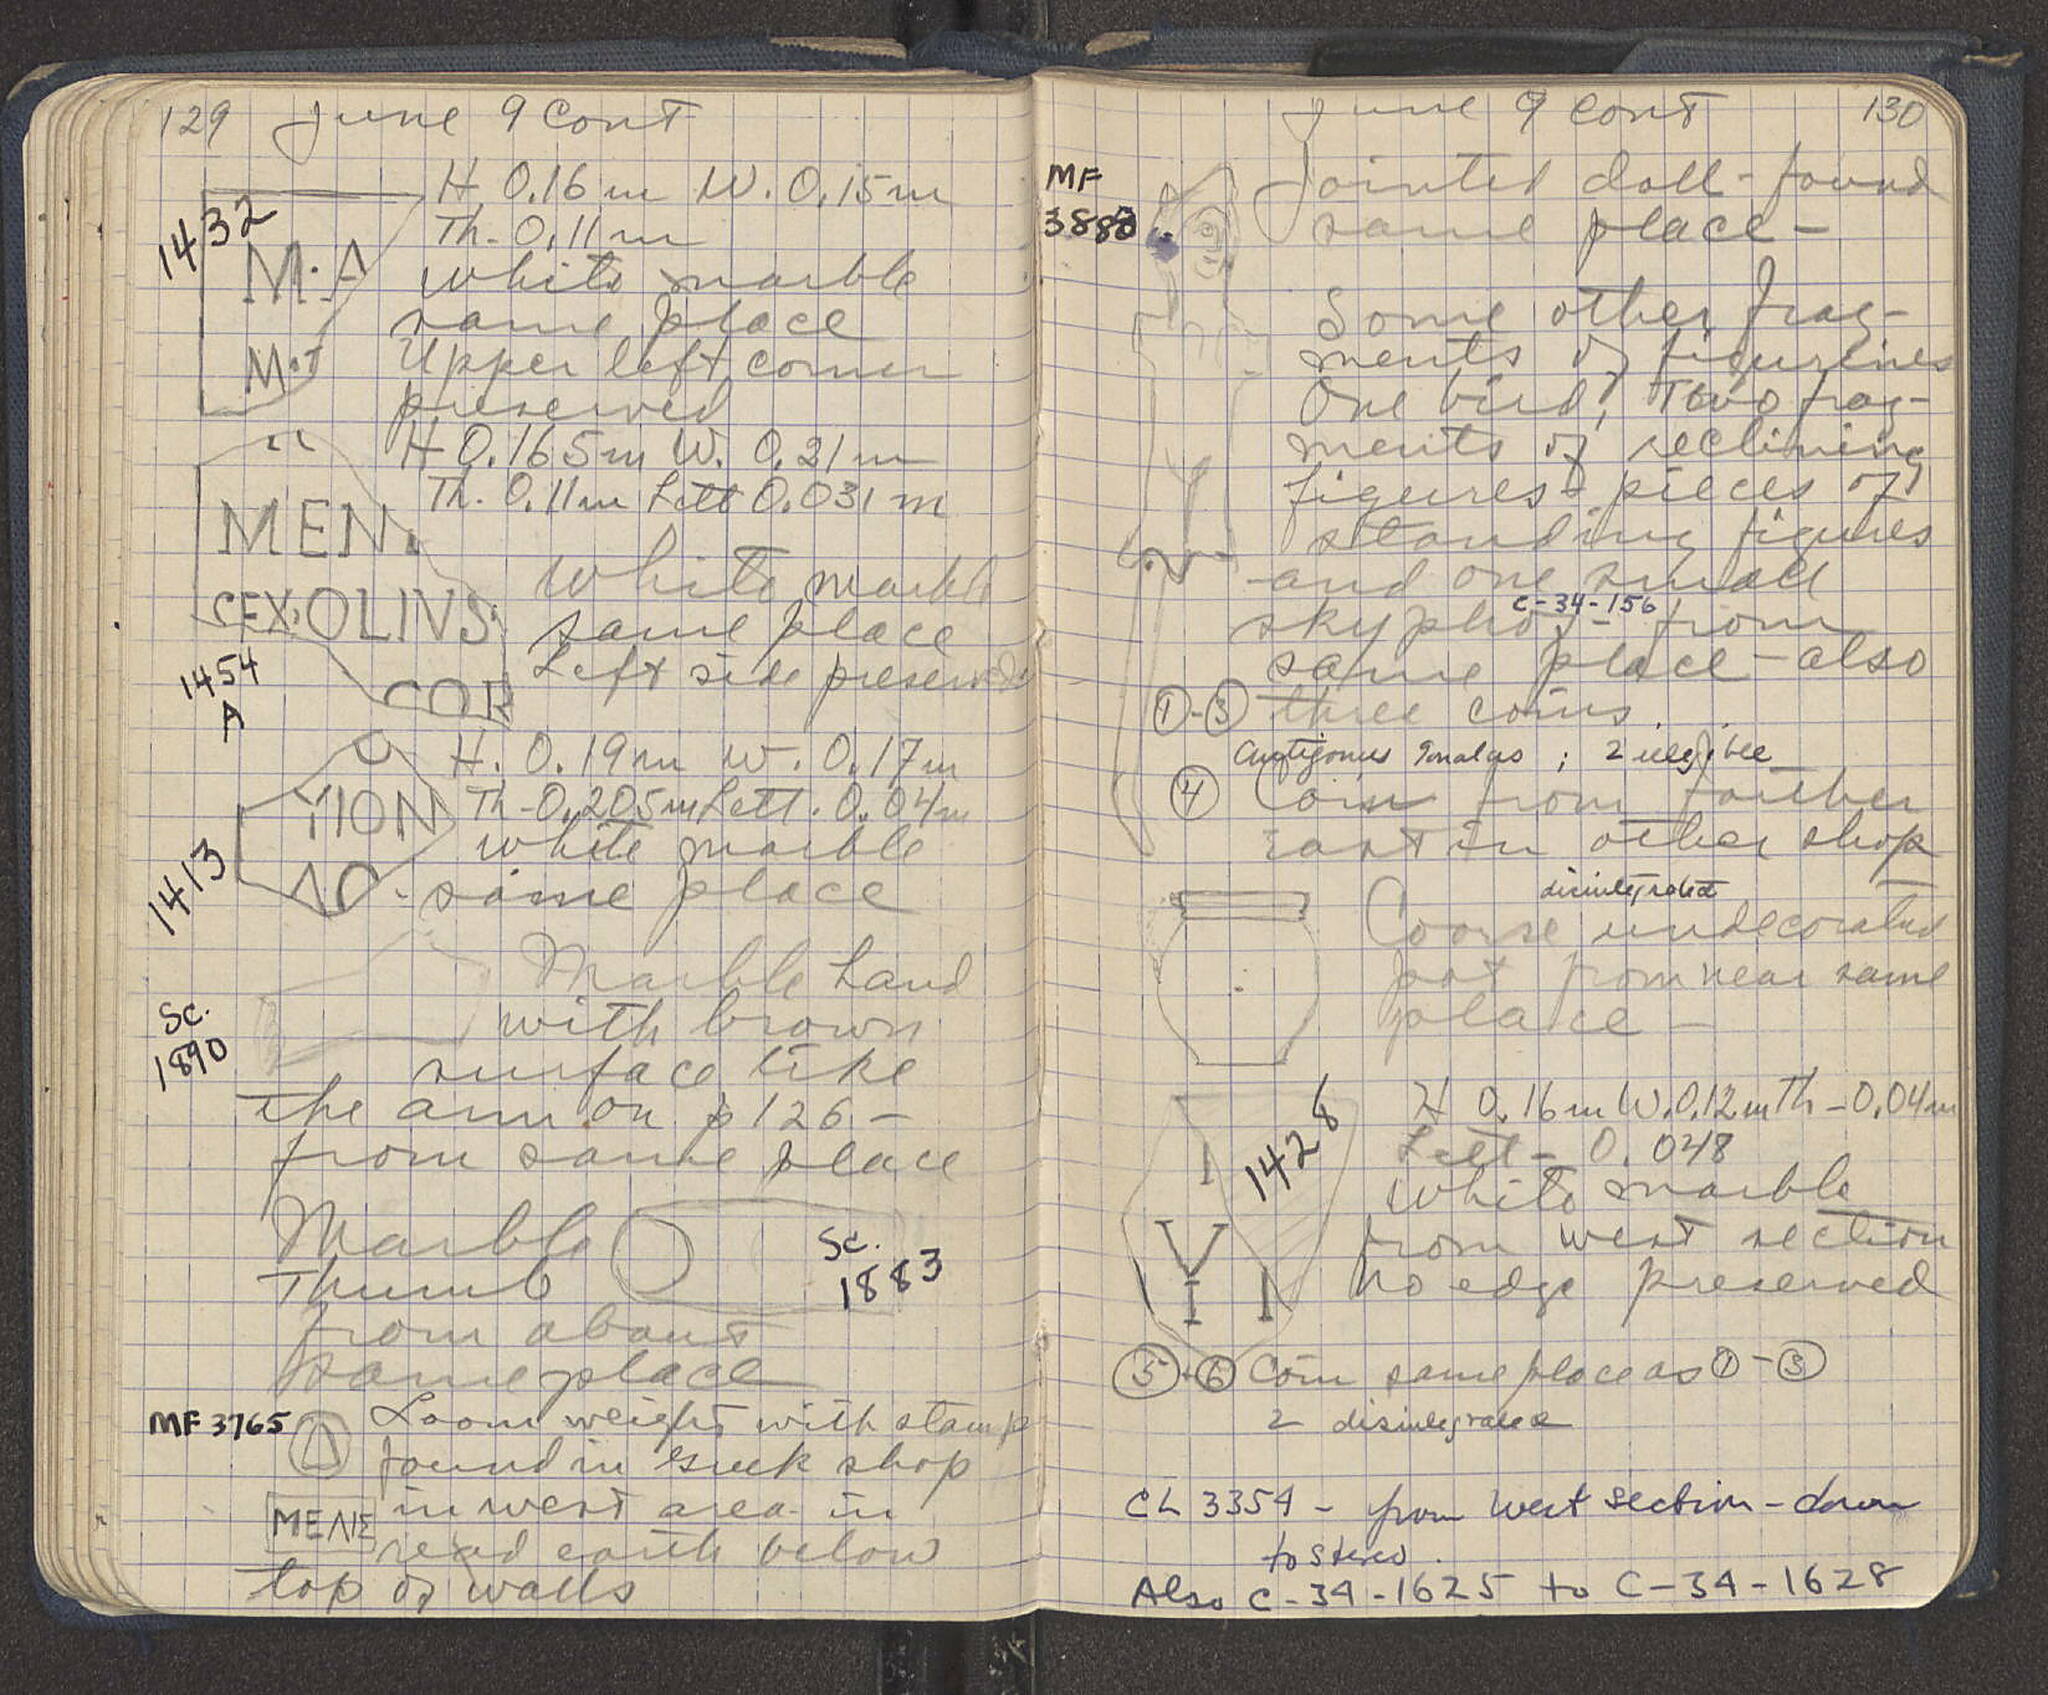 129 June 9 Cont
1432
M·A
M·T
H. 0.16m W. 0.15m
Th. 0.11m
White marble
same place
Upper left corner
preserved
H 0.165m W. 0.21m
Th. 0.11m Lett 0.031m
MEN
OLIVS
COR
1454
A
White marble
same place
Left side preserved
H. 0.19m W. 0.17m
Th-0.205m Lett. 0.04m
ΠΟΝ
1413
White marble
same place
Sc.
1890
Marble hand
with brown
surface like
the arm on p 126 -
from same place
Marble
Thumb
Sc.
1883
from about
same place
MF 3765
Loom weight with stamp
found in Greek shop
in west area in
read earth below
top of walls
ΜΕΛΙΣ
June 9 Cont 130
MF
Jointed doll - found
same place -
Some other frag-
ments of figurines
One bird, Two frag-
ments of reclining
figures - pieces of
standing figures
and one small
C-34-156
skyphos - from
same place - also
1 - 3 three coins.
Antigonus Gonatas ; 2 illegible
4 Coin from farther
east in other shop
disintegrated
Coarse undecorated
pot from near same
place -
1428
I
Y
I I
H 0.16m W. 0.12m Th - 0.04m
Lett - 0.048
White marble
from west section
No edge preserved
5 + 6 Coin same place as 1 - 3
2 disintegrated
CL 3354 - from West section - down
to stereo.
Also C-34-1625 to C-34-1628